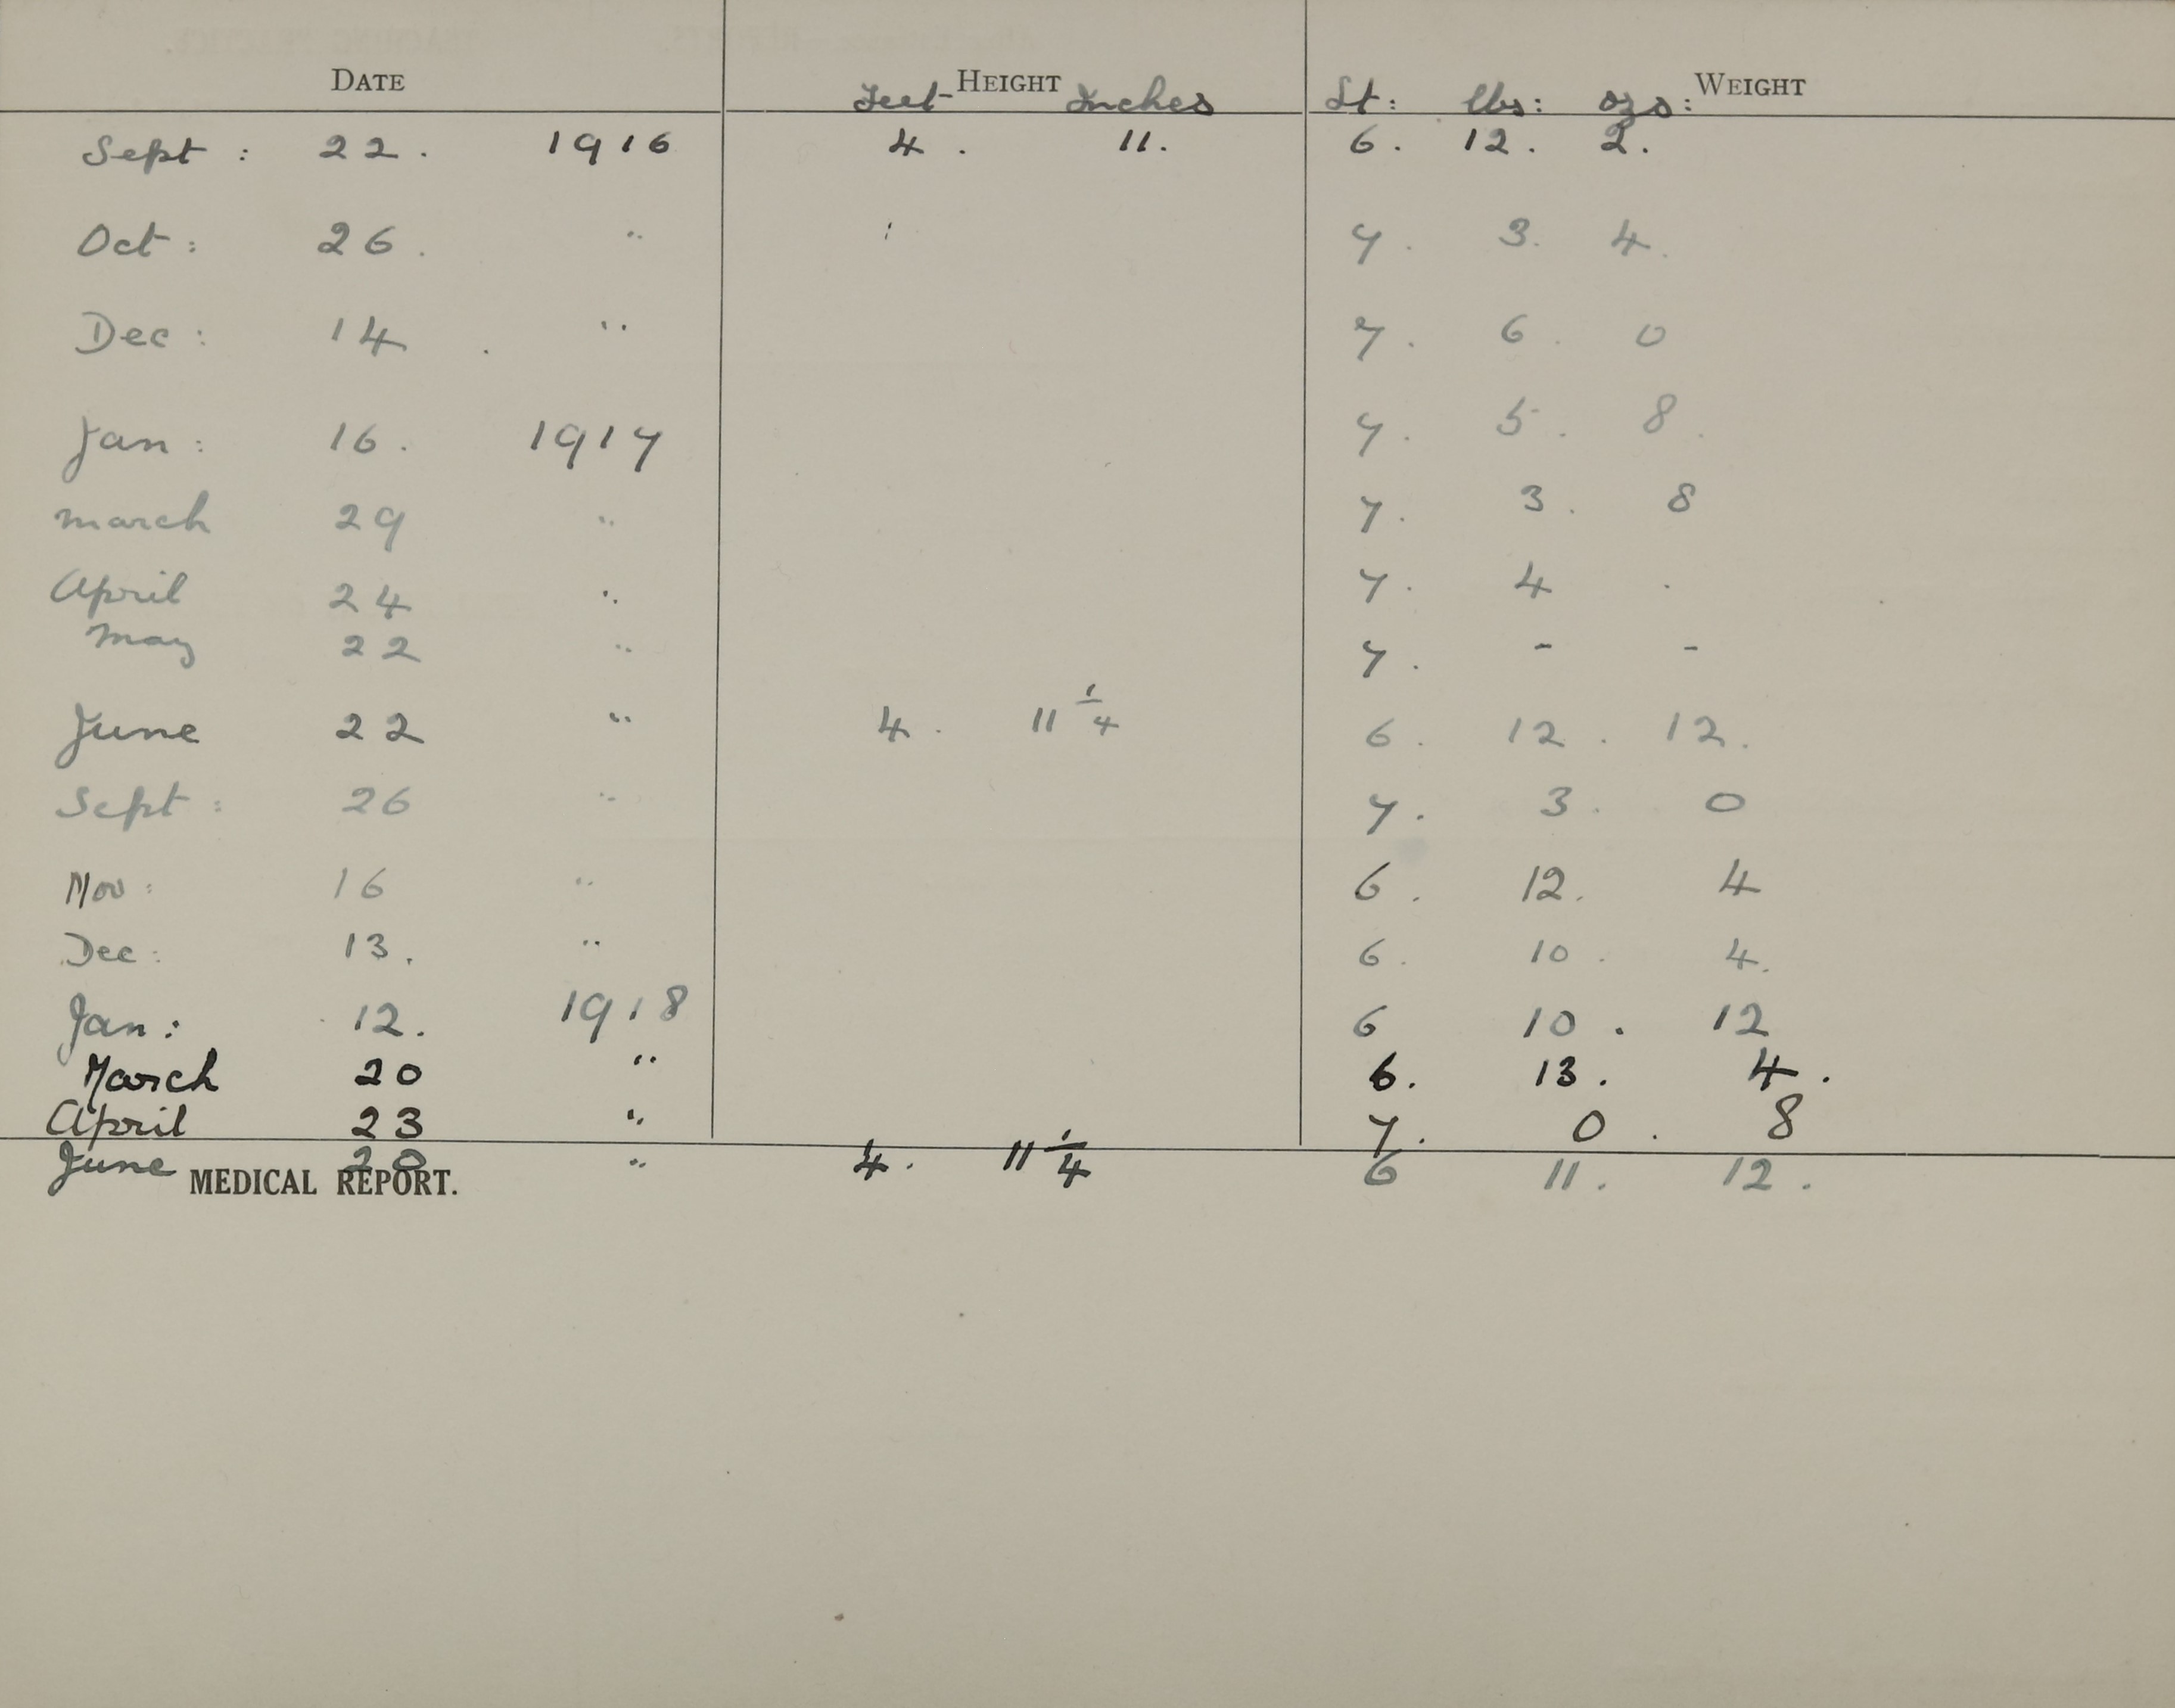 DATE HEIGHT WEIGHT
Feet Inches St: lbs: ozs:
Sept : 22. 1916 4. 11. 6. 12. 2.
Oct : 26. " 7. 3. 4.
Dec : 14. " 7. 6. 0
Jan : 16. 1917 7. 5. 8.
March 29 " 7. 3. 8
April 24 " 7. 4 .
May 22 " 7. - -
June 22 " 4. 11 1/4 6. 12. 12.
Sept : 26 " 7. 3. 0
Nov : 16 " 6. 12. 4
Dec : 13. " 6. 10. 4.
Jan : 12. 1918 6 10. 12
March 20 " 6. 13. 4.
April 23 " 7. 0. 8
June " 4. 11 1/4 6 11. 12.
MEDICAL REPORT.